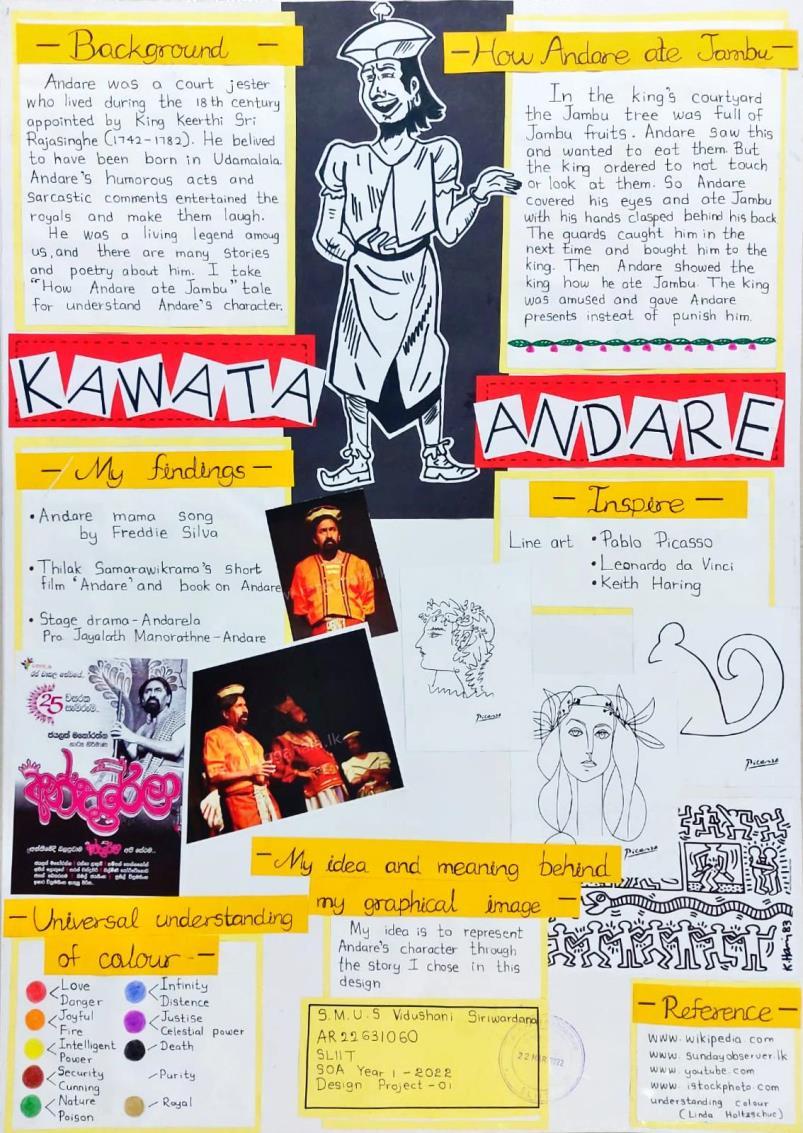 — Background —
Andare was a court jester
who lived during the 18th century
appointed by King Keerthi Sri
Rajasinghe (1742-1782). He belived
to have been born in Udamalala.
Andare's humorous acts and
sarcastic comments entertained the
royals and make them laugh.
He was a living legend amoung
us, and there are many stories
and poetry about him. I take
"How Andare ate Jambu" tale
for understand Andare's character.
— How Andare ate Jambu —
In the king's courtyard
the Jambu tree was full of
Jambu fruits. Andare saw this
and wanted to eat them. But
the king ordered to not touch
or look at them. So Andare
covered his eyes and ate Jambu
with his hands clasped behind his back
The guards caught him in the
next time and bought him to the
king. Then Andare showed the
king how he ate Jambu. The king
was amused and gave Andare
presents insteat of punish him.
KAWATA
ANDARE
— My findings —
• Andare mama song
by Freddie Silva
• Thilak Samarawikrama's short
film 'Andare' and book on Andare
• Stage drama - Andarela
Pro. Jayalath Manorathne - Andare
— Inspire —
Line art • Pablo Picasso
• Leonardo da Vinci
• Keith Haring
Picasso
Picasso
Picasso
K. Hari 83
25 වසරක
සැමරුම..
ජයලත් මනෝරත්න
අන්දරේලා
— My idea and meaning behind
my graphical image —
My idea is to represent
Andare's character through
the story I chose in this
design
— Universal understanding
of colour —
Love
Danger
Joyful
Fire
Intelligent
Power
Security
Cunning
Nature
Poison
Infinity
Distence
Justise
Celestial power
Death
Purity
Royal
S.M.U.S Vidushani Siriwardana
AR22631060
SLIIT
SOA Year 1 - 2022
Design Project - 01
22 MAR 2022
— Reference —
www.wikipedia.com
www.sundayobserver.lk
www.youtube.com
www.istockphoto.com
understanding colour
(Linda Holtzschuc)